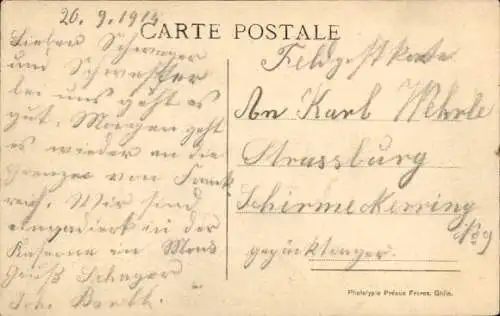 20. 9. 1914
CARTE POSTALE
Lieben Schwager
und Schwester
bei uns geht es
gut. Morgen geht
es wieder an die
Grenze von Frank
reich. Wir sind
in der
Kaserne in Mons
Gruß Schager
Joh.
Feldpostkarte
An Karl Wehrle
Strassburg
Schirmeckerring
Phototypie Préaux Frères, Ghlin.